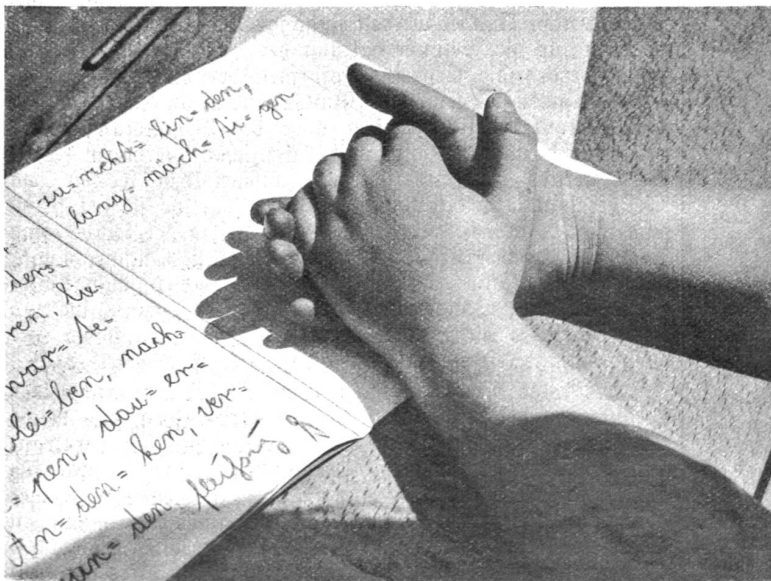 zu=recht= fin=den,
lang= mäch= ti= gen
ders-
ren,
war= te=
ben, nach=
= pen, dau= er=
An= den= ken, ver=
den fleißig